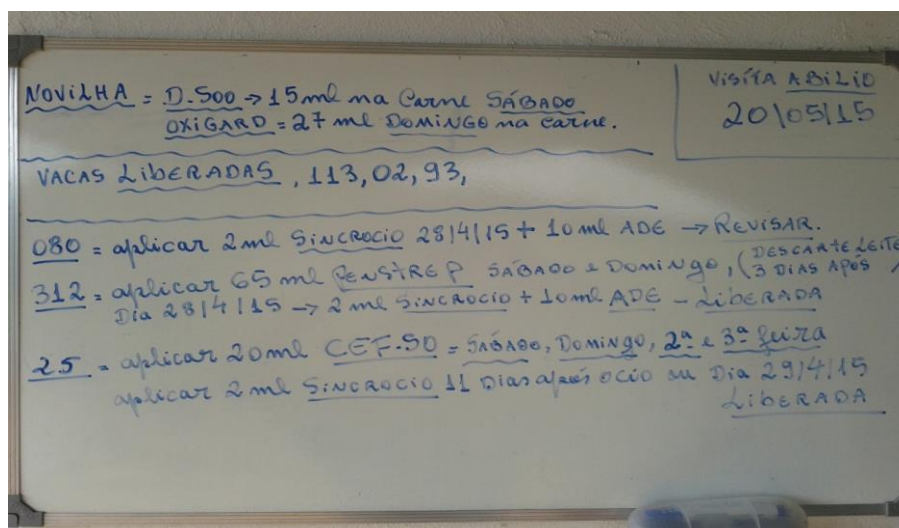 NOVILHA = D.500 → 15 ml na Carne SÁBADO
OXIGARD = 27 ml DOMINGO na carne.
VISÍTA ABILIO
20/05/15
VACAS LIBERADAS, 113, 02, 93,
080 = aplicar 2 ml SINCROCIO 28/4/15 + 10 ml ADE → REVISAR.
312 = aplicar 65 ml PENSTREP SÁBADO e DOMINGO, (DESCARTE LEITE
3 DIAS APÓS )
DIA 28/4/15 → 2 ml SINCROCIO + 10 ml ADE - LIBERADA
25 = aplicar 20 ml CEF.50 = SÁBADO, DOMINGO, 2ª e 3ª feira
aplicar 2 ml SINCROCIO 11 Dias após o cio ou Dia 29/4/15
LIBERADA